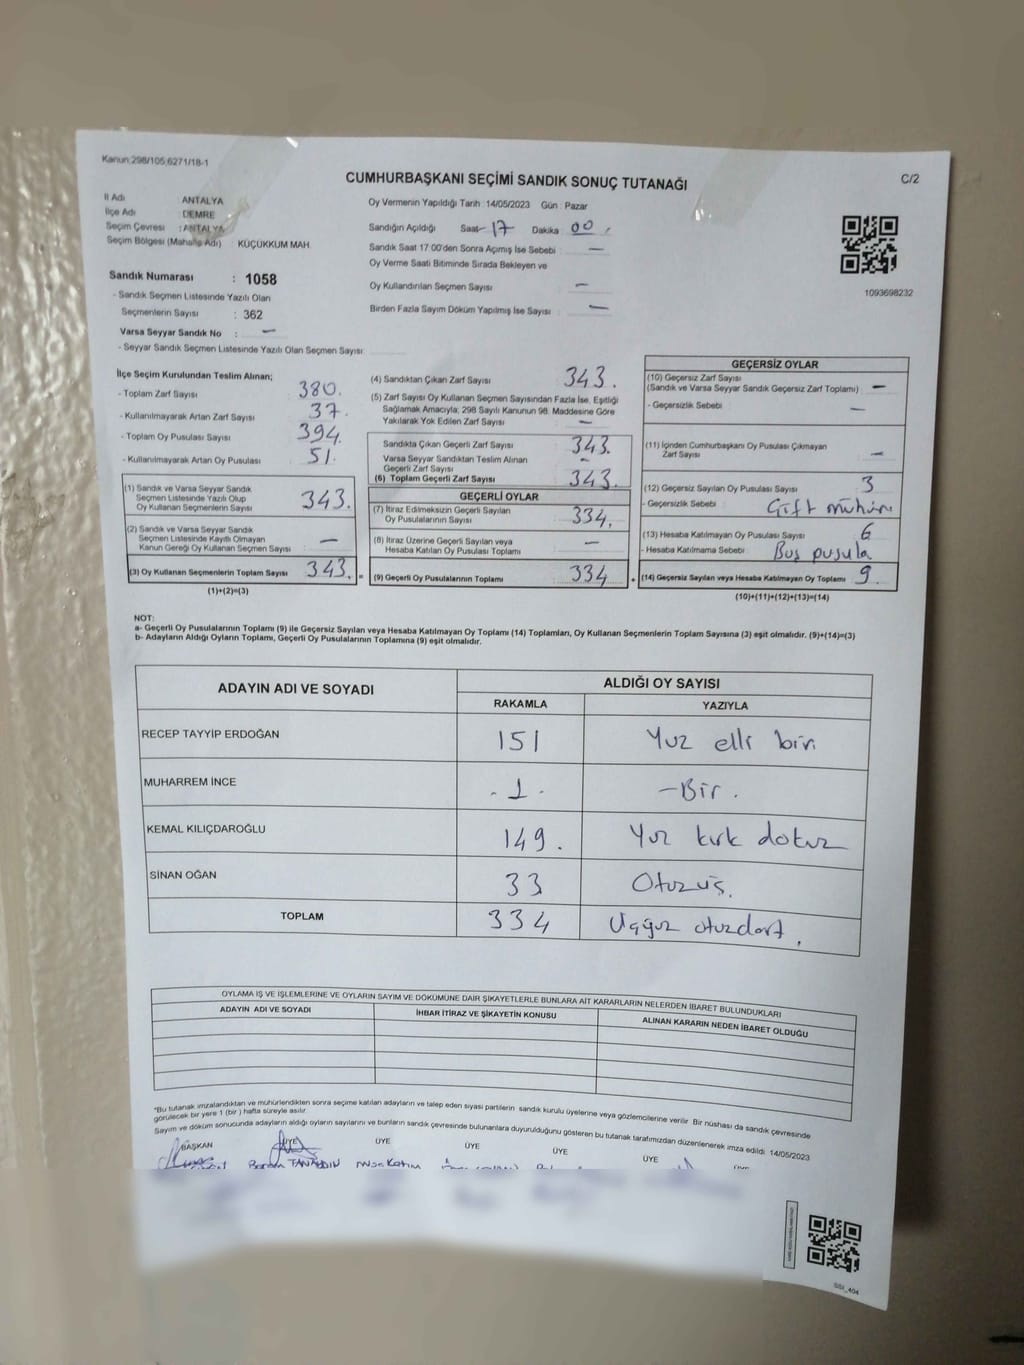 Kanun:298/105;6271/18-1
CUMHURBAŞKANI SEÇİMİ SANDIK SONUÇ TUTANAĞI
C/2
İl Adı ANTALYA
İlçe Adı : DEMRE
Seçim Çevresi : ANTALYA
Seçim Bölgesi (Mahalle Adı) : KÜÇÜKKUM MAH.
Sandık Numarası : 1058
- Sandık Seçmen Listesinde Yazılı Olan
Seçmenlerin Sayısı : 362
Varsa Seyyar Sandık No : —
- Seyyar Sandık Seçmen Listesinde Yazılı Olan Seçmen Sayısı:
Oy Vermenin Yapıldığı Tarih :14/05/2023 Gün : Pazar
Sandığın Açıldığı Saat 17 Dakika 00
Sandık Saat 17:00'den Sonra Açımış İse Sebebi : —
Oy Verme Saati Bitiminde Sırada Bekleyen ve
Oy Kullandırılan Seçmen Sayısı : —
Birden Fazla Sayım Döküm Yapılmış İse Sayısı : —
1093698232
İlçe Seçim Kurulundan Teslim Alınan;
- Toplam Zarf Sayısı : 380.
- Kullanılmayarak Artan Zarf Sayısı : 37.
- Toplam Oy Pusulası Sayısı : 394.
- Kullanılmayarak Artan Oy Pusulası : 51.
(1) Sandık ve Varsa Seyyar Sandık
Seçmen Listesinde Yazılı Olup
Oy Kullanan Seçmenlerin Sayısı 343.
(2) Sandık ve Varsa Seyyar Sandık
Seçmen Listesinde Kayıtlı Olmayan
Kanun Gereği Oy Kullanan Seçmen Sayısı —
(3) Oy Kullanan Seçmenlerin Toplam Sayısı 343. =
(1)+(2)=(3)
(4) Sandıktan Çıkan Zarf Sayısı 343.
(5) Zarf Sayısı Oy Kullanan Seçmen Sayısından Fazla İse, Eşitliği
Sağlamak Amacıyla; 298 Sayılı Kanunun 98. Maddesine Göre
Yakılarak Yok Edilen Zarf Sayısı : —
Sandıkta Çıkan Geçerli Zarf Sayısı 343.
Varsa Seyyar Sandıktan Teslim Alınan
Geçerli Zarf Sayısı —
(6) Toplam Geçerli Zarf Sayısı 343.
GEÇERLİ OYLAR
(7) İtiraz Edilmeksizin Geçerli Sayılan
Oy Pusulalarının Sayısı 334.
(8) İtiraz Üzerine Geçerli Sayılan veya
Hesaba Katılan Oy Pusulası Toplamı —
(9) Geçerli Oy Pusulalarının Toplamı 334 +
GEÇERSİZ OYLAR
(10) Geçersiz Zarf Sayısı
(Sandık ve Varsa Seyyar Sandık Geçersiz Zarf Toplamı) —
- Geçersizlik Sebebi : —
(11) İçinden Cumhurbaşkanı Oy Pusulası Çıkmayan
Zarf Sayısı —
(12) Geçersiz Sayılan Oy Pusulası Sayısı 3
- Geçersizlik Sebebi : Çift mühür
(13) Hesaba Katılmayan Oy Pusulası Sayısı 6
- Hesaba Katılmama Sebebi : Boş pusula
(14) Geçersiz Sayılan veya Hesaba Katılmayan Oy Toplamı 9.
(10)+(11)+(12)+(13)=(14)
NOT:
a- Geçerli Oy Pusulalarının Toplamı (9) ile Geçersiz Sayılan veya Hesaba Katılmayan Oy Toplamı (14) Toplamları, Oy Kullanan Seçmenlerin Toplam Sayısına (3) eşit olmalıdır. (9)+(14)=(3)
b- Adayların Aldığı Oyların Toplamı, Geçerli Oy Pusulalarının Toplamına (9) eşit olmalıdır.
ADAYIN ADI VE SOYADI ALDIĞI OY SAYISI
RAKAMLA YAZIYLA
RECEP TAYYİP ERDOĞAN 151 Yüz elli bir
MUHARREM İNCE - 1 - - Bir .
KEMAL KILIÇDAROĞLU 149 . Yüz kırk dokuz
SİNAN OĞAN 33 Otuzüç.
TOPLAM 334 Üçyüz otuzdört .
OYLAMA İŞ VE İŞLEMLERİNE VE OYLARIN SAYIM VE DÖKÜMÜNE DAİR ŞİKAYETLERLE BUNLARA AİT KARARLARIN NELERDEN İBARET BULUNDUKLARI
ADAYIN ADI VE SOYADI İHBAR İTİRAZ VE ŞİKAYETİN KONUSU ALINAN KARARIN NEDEN İBARET OLDUĞU
*Bu tutanak imzalandıktan ve mühürlendikten sonra seçime katılan adayların ve talep eden siyasi partilerin sandık kurulu üyelerine veya gözlemcilerine verilir. Bir nüshası da sandık çevresinde
görülecek bir yere 1 (bir) hafta süreyle asılır.
Sayım ve döküm sonucunda adayların aldığı oyların sayılarını ve bunların sandık çevresinde bulunanlara duyurulduğunu gösteren bu tutanak tarafımızdan düzenlenerek imza edildi. 14/05/2023
BAŞKAN ÜYE ÜYE ÜYE ÜYE ÜYE
SSI_404